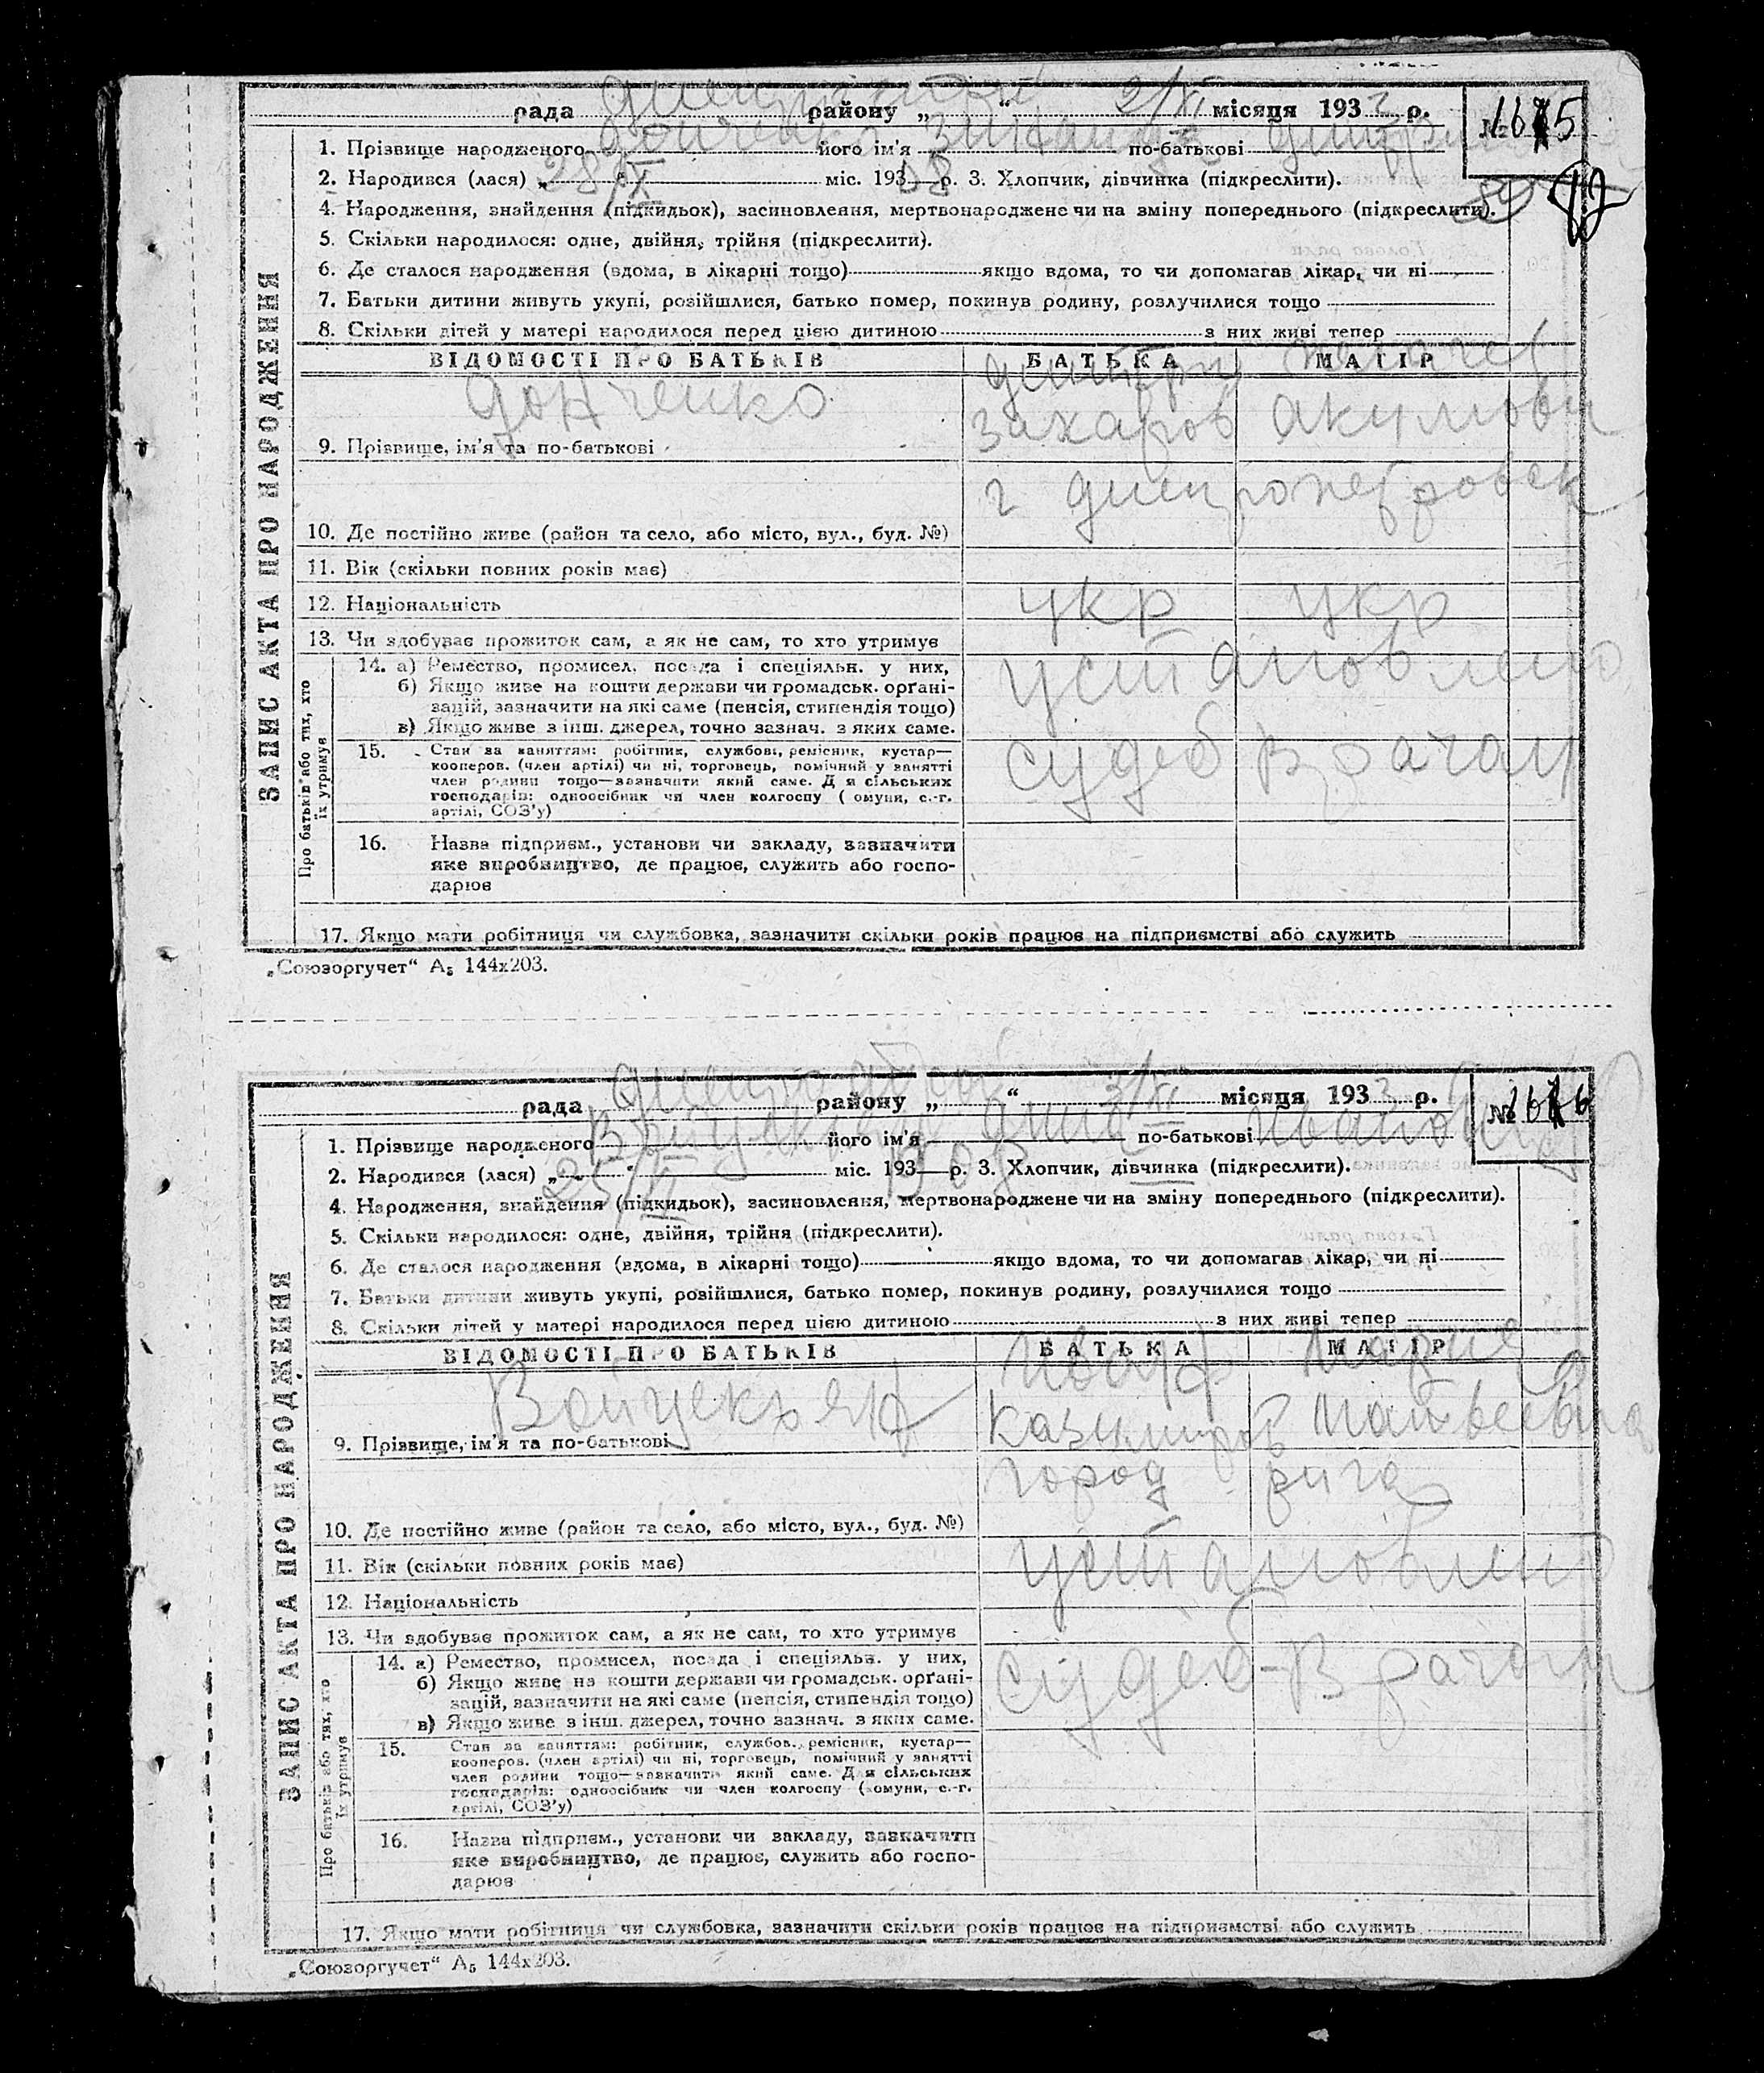 рада района „ “ 2/XI місяця 1933 р.
№ 1675
1. Прізвище народженого його ім'я по-батькові
2. Народився (лася) „28/X“ міс. 193 08 р. 3. Хлопчик, дівчинка (підкреслити).
4. Народження, знайдення (підкидьок), засиновлення, мертвонароджене чи на зміну попереднього (підкреслити).
5. Скільки народилося: одне, двійня, трійня (підкреслити).
6. Де сталося народження (вдома, в лікарні тощо) якщо вдома, то чи допомагав лікар, чи ні
7. Батьки дитини живуть укупі, розійшлися, батько помер, покинув родину, розлучилися тощо
8. Скільки дітей у матері народилося перед цією дитиною з них живі тепер
ВІДОМОСТІ ПРО БАТЬКІВ БАТЬКА МАТІР
Донченко Захаров Акимовн
9. Прізвище, ім'я та по-батькові
г Днепропетровск
10. Де постійно живе (район та село, або місто, вул., буд. №)
11. Вік (скільки повних років має)
12. Національність укр укр
13. Чи здобуває прожиток сам, а як не сам, то хто утримує
14. а) Ремество, промисел, посада і спеціяльн. у них, установлено
б) Якщо живе на кошти держави чи громадськ. орґані-
зацій, зазначити на які саме (пенсія, стипендія тощо)
в) Якщо живе з інш. джерел, точно зазнач. з яких саме.
15. Стан за заняттям: робітник, службов., ремісник, кустар—
кооперов. (член артілі) чи ні, торговець, помічний у занятті судеб врачом
член родини тощо—зазначити який саме. Для сільських
господарів: одноосібник чи член колгоспу (комуни, с.-г.
артілі, СОЗ'у)
16. Назва підприєм., установи чи закладу, зазначити
яке виробництво, де працює, служить або госпо-
дарює
17. Якщо мати робітниця чи службовка, зазначити скільки років працює на підприємстві або служить
ЗАПИС АКТА ПРО НАРОДЖЕННЯ
Про батьків або тих, хто
їх утримує
„Союзоргучет“ А₅ 144х203.
рада району „ “ 3/XI місяця 1933 р.
№ 1676
1. Прізвище народженого його ім'я Анна по-батькові Ивановна
2. Народився (лася) „25/ “ міс. 193 1908 р. 3. Хлопчик, дівчинка (підкреслити).
4. Народження, знайдення (підкидьок), засиновлення, мертвонароджене чи на зміну попереднього (підкреслити).
5. Скільки народилося: одне, двійня, трійня (підкреслити).
6. Де сталося народження (вдома, в лікарні тощо) якщо вдома, то чи допомагав лікар, чи ні
7. Батьки дитини живуть укупі, розійшлися, батько помер, покинув родину, розлучилися тощо
8. Скільки дітей у матері народилося перед цією дитиною з них живі тепер
ВІДОМОСТІ ПРО БАТЬКІВ БАТЬКА МАТІР
Казимиров Матвеевна
9. Прізвище, ім'я та по-батькові
город рига
10. Де постійно живе (район та село, або місто, вул., буд. №)
11. Вік (скільки повних років має) установлено
12. Національність
13. Чи здобуває прожиток сам, а як не сам, то хто утримує
14. а) Ремество, промисел, посада і спеціяльн. у них, судеб-врачом
б) Якщо живе на кошти держави чи громадськ. орґані-
зацій, зазначити на які саме (пенсія, стипендія тощо)
в) Якщо живе з інш. джерел, точно зазнач. з яких саме.
15. Стан за заняттям: робітник, службов., ремісник, кустар—
кооперов. (член артілі) чи ні, торговець, помічний у занятті
член родини тощо—зазначити який саме. Для сільських
господарів: одноосібник чи член колгоспу (комуни, с.-г.
артілі, СОЗ'у)
16. Назва підприєм., установи чи закладу, зазначити
яке виробництво, де працює, служить або госпо-
дарює
17. Якщо мати робітниця чи службовка, зазначити скільки років працює на підприємстві або служить
ЗАПИС АКТА ПРО НАРОДЖЕННЯ
Про батьків або тих, хто
їх утримує
„Союзоргучет“ А₅ 144х203.